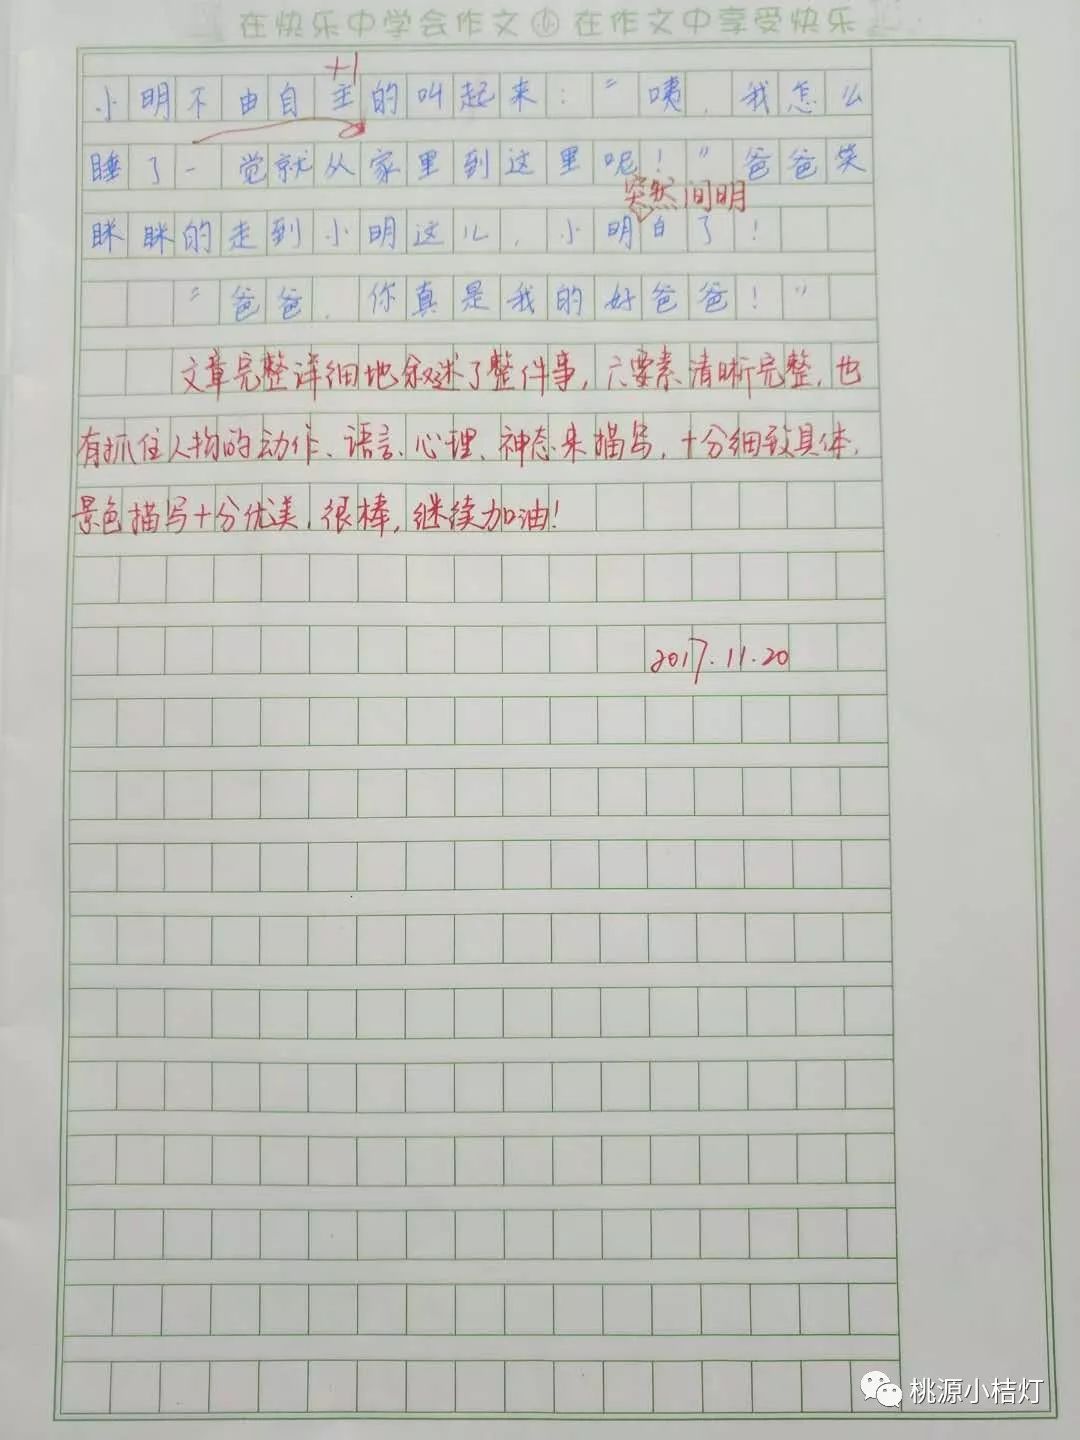 在快乐中学会作文 在作文中享受快乐
+1
小明不由自主的叫起来：“咦，我怎么
睡了一觉就从家里到这里呢！”爸爸笑
突然间明
眯眯的走到小明这儿，小明白了！
“爸爸，你真是我的好爸爸！”
文章完整详细地叙述了整件事，六要素清晰完整，也
有抓住人物的动作、语言、心理、神态来描写，十分细致具体，
景色描写十分优美，很棒，继续加油！
2017.11.20
桃源小桔灯